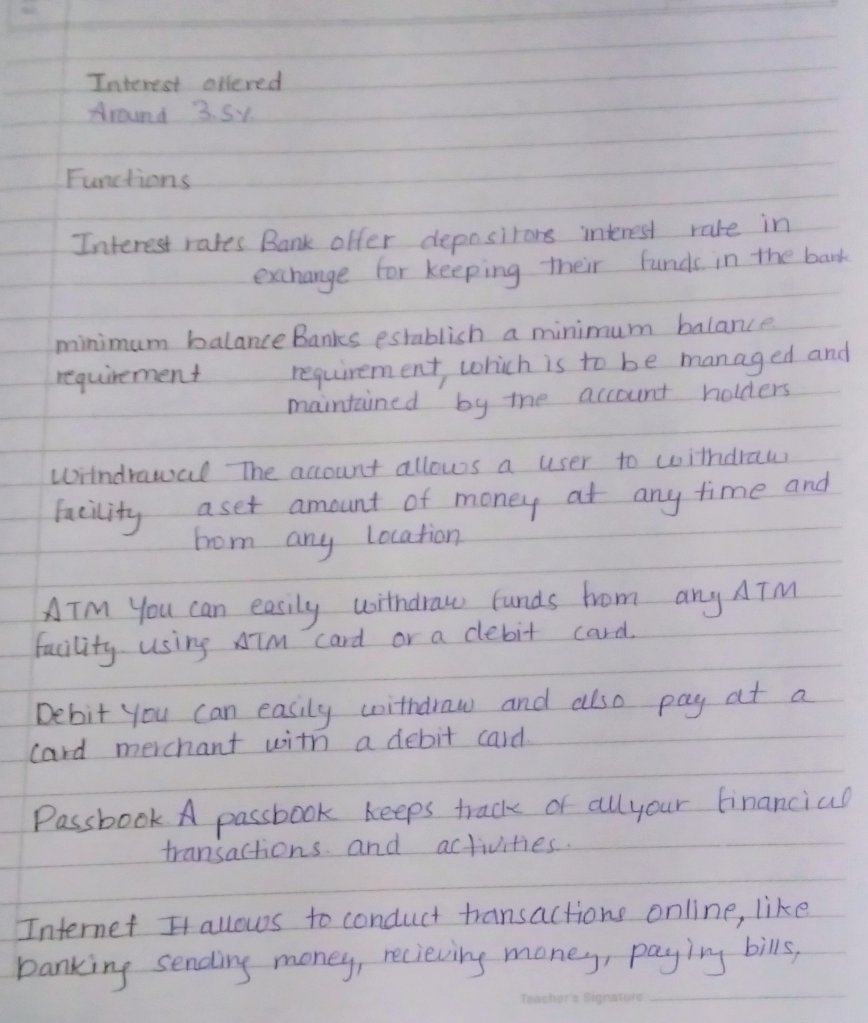 Interest offered
Around 3.5%
Functions
Interest rates Bank offer depositors interest rate in
exchange for keeping their funds in the bank
minimum balance Banks establish a minimum balance
requirement requirement, which is to be managed and
maintained by the account holders
Withdrawal The account allows a user to withdraw
facility a set amount of money at any time and
from any location
ATM You can easily withdraw funds from any ATM
facility using ATM card or a debit card.
Debit You can easily withdraw and also pay at a
card merchant with a debit card.
Passbook A passbook keeps track of all your financial
transactions and activities.
Internet It allows to conduct transactions online, like
banking sending money, recieving money, paying bills,
Teacher's Signature